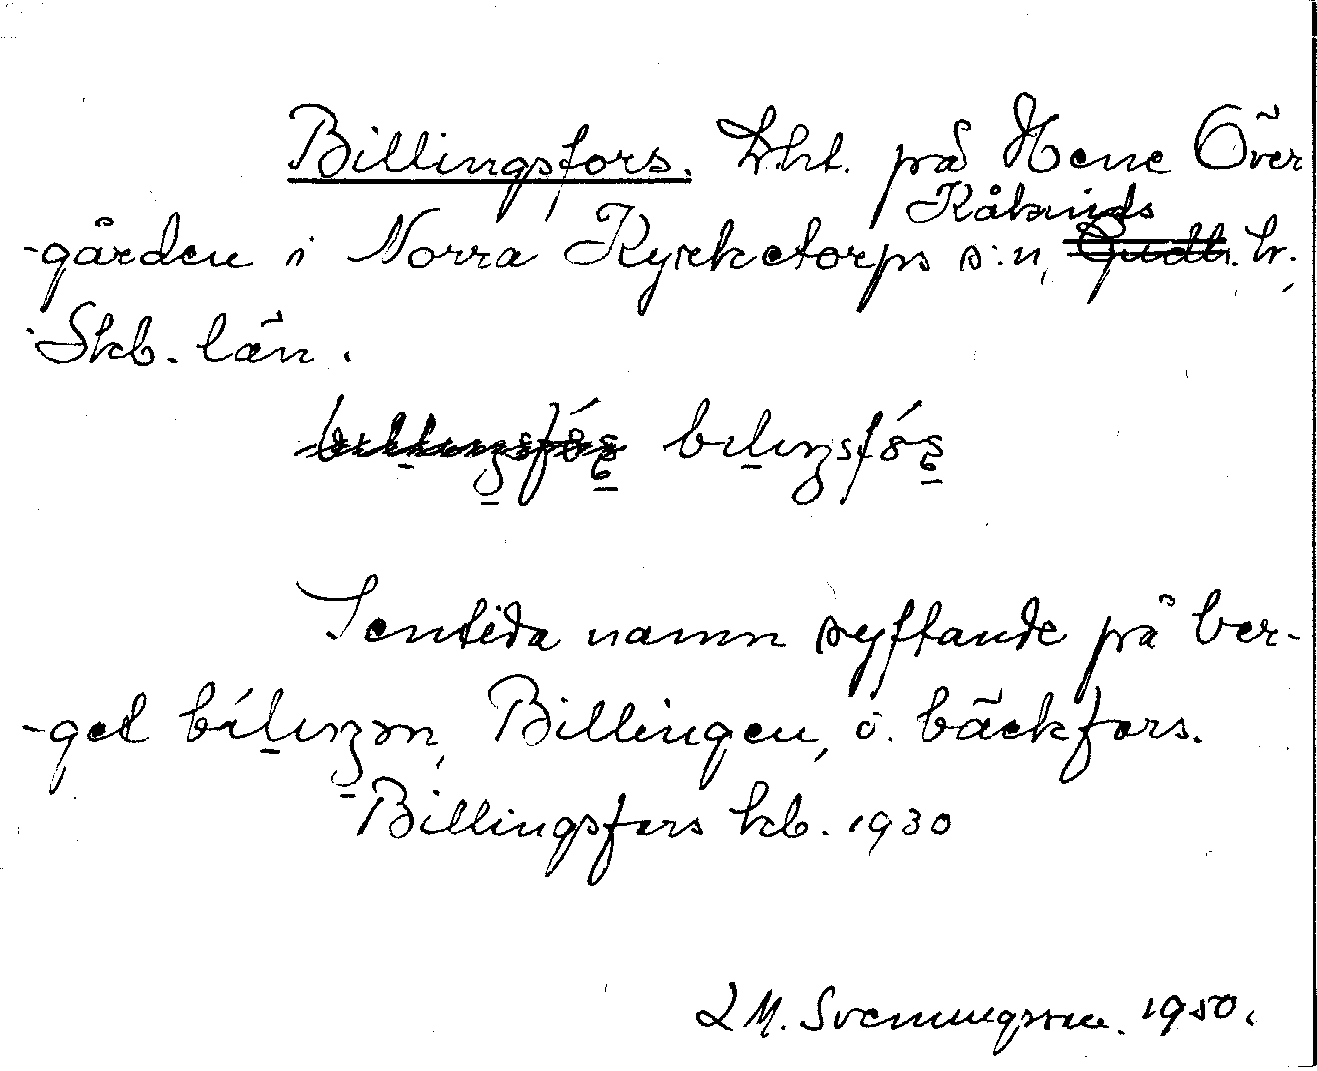 Billingsfors. Lht. på Hene Över
-gården i Norra Kyrketorps s:n, Kåkinds hr.
Skb. län.
bɩlɩŋsfǿʂ
Sentida namn syftande på ber-
-get bílɩŋən, Billingen, o. bäckfors.
Billingsfors kb. 1930
L M. Svenungsson. 1950.